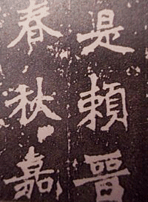 是頼晉
春秋嘉